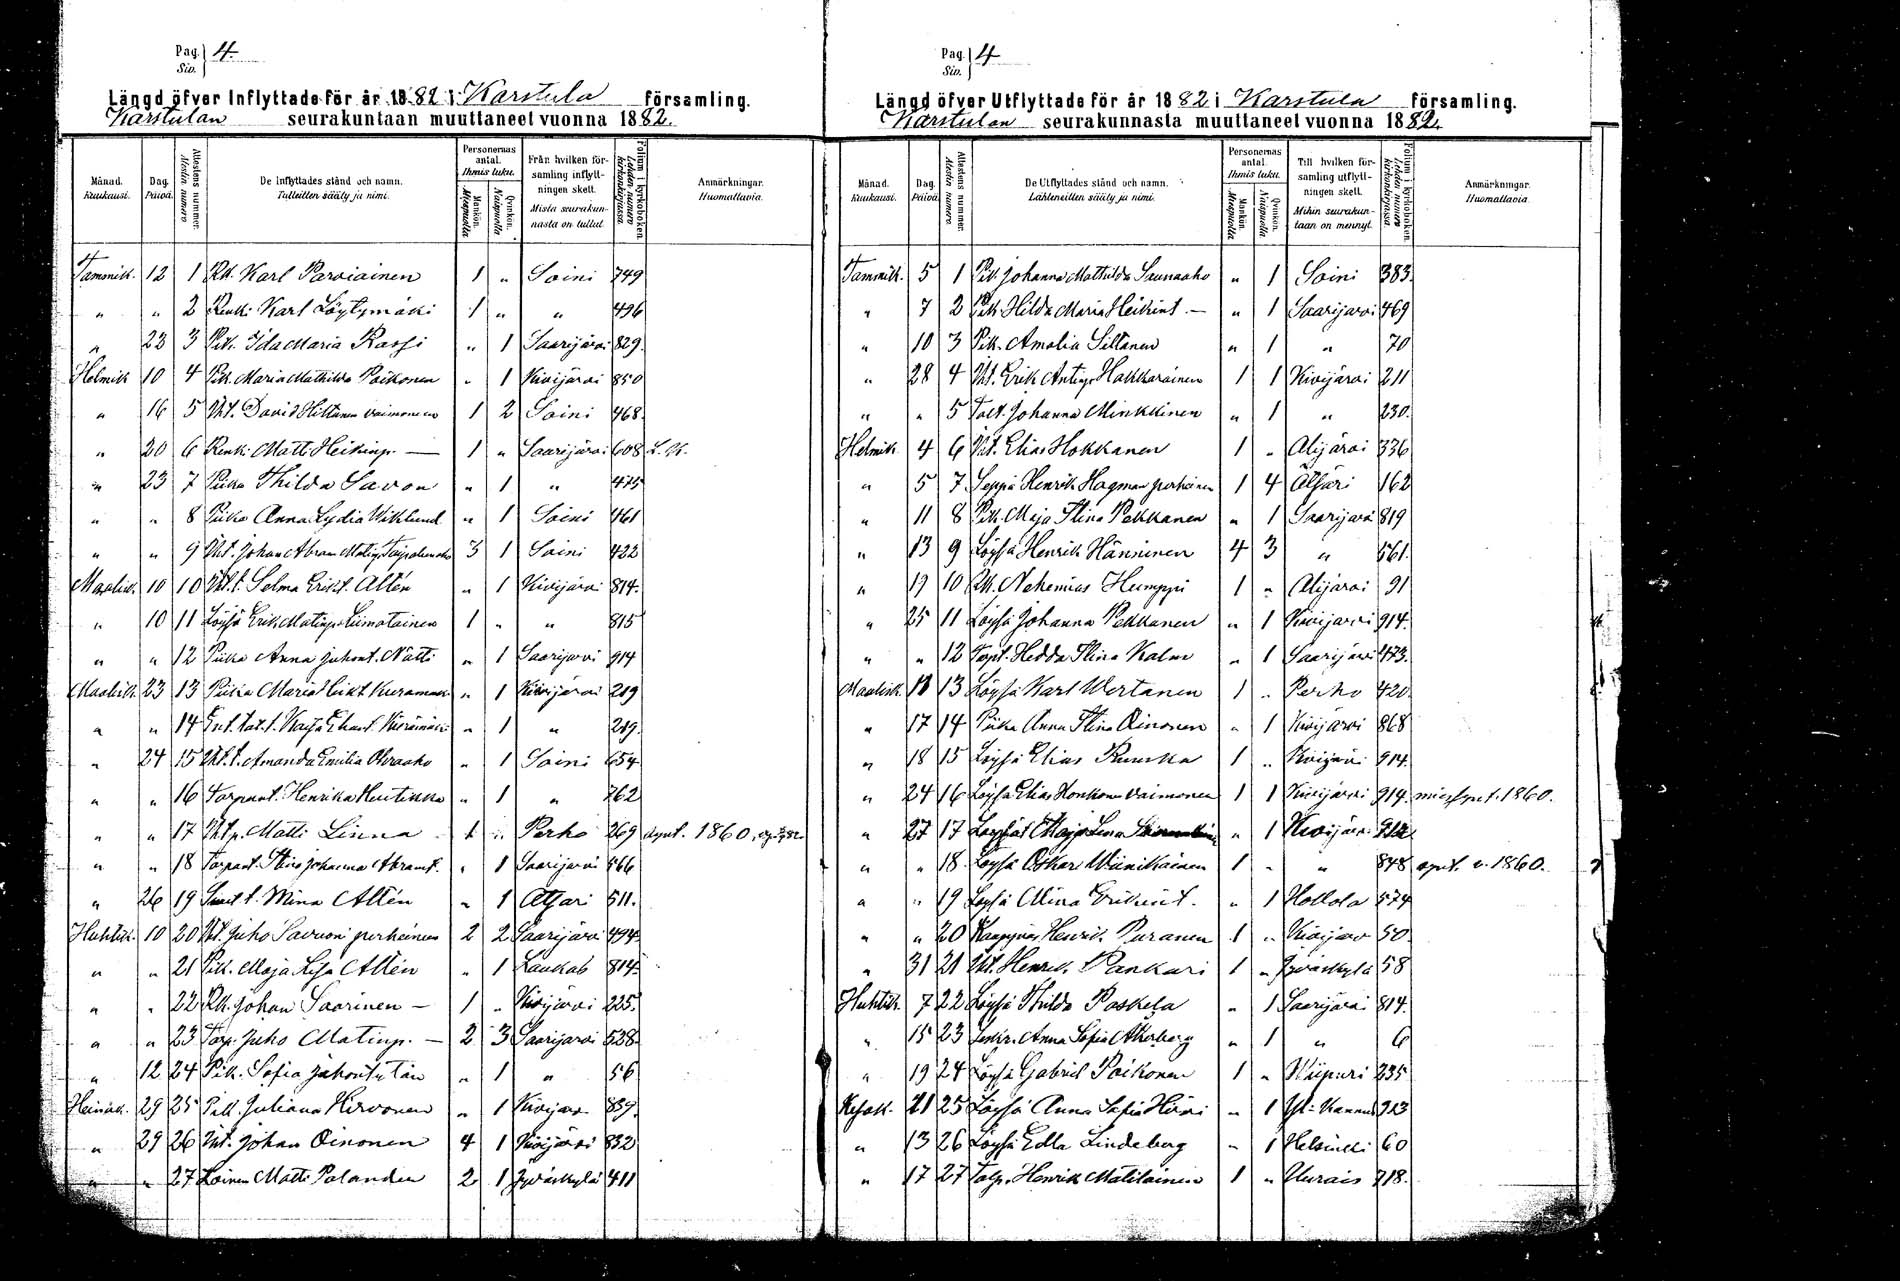 Pag. 4.
Siv.
Längd öfver Inflyttade för år 1882 i Karstula församling.
Karstulan seurakuntaan muuttaneet vuonna 1882.
Månad. Kuukausi.
Dag. Päivä.
Attestens nummer. Atestin numero
De Inflyttades stånd och namn. Tulleitten sääty ja nimi.
Personernas antal. Ihmis luku.
Mankön. Miespuolia
Qvinkön. Naispuolia
Från hvilken församling inflyttningen skett. Mista seurakunnasta on tullut.
Folium i kyrkoboken. Lehden numero kirkonkirjassa.
Anmärkningar. Huomattavia.
Tammik. 12 1 Rk. Karl Parviainen 1 " Soini 749
" " 2 Renk. Karl Löytymäki 1 " " 496
" 23 3 Piik. Ida Maria Rassi " 1 Saarijärvi 829.
Helmik 10 4 Piik. Maria Mathilda Poikonen " 1 Kivijärvi 850
" 16 5 Iht. David Hiltunen vaimoneen 1 2 Soini 468.
" 20 6 Renk. Matti Heikinp. — 1 " Saarijärvi 608 L. K.
" 23 7 Piika Thilda Savon " 1 " 475
" " 8 Piika Anna Lydia Wiklund " 1 Soini 461
" " 9 Iht. Johan Abram Matinp. 3 1 Soini 422
Maalisk. 10 10 Iht. t. Selma Erikt. Altén " 1 Kivijärvi 814.
" 10 11 Löysä Erik Matinp. Liimatainen 1 " " 815
" " 12 Piika Anna Juhont. Nätti " 1 Saarijärvi 914
Maalisk. 23 13 Piika Maria Heikt. " 1 Kivijärvi 219
" " 14 Ent. tal. t. Kaisa " 1 " 219.
" 24 15 Iht. t. Amanda Emilia Oksaaho " 1 Soini 654
" " 16 Torpant. Henrika Hautikka " 1 " 762
" " 17 Iht. p. Matti Linna 1 " Perho 269 synt. 1860,
" " 18 Torpant. Stina Johanna Abramt. " 1 Saarijärvi 566
" 26 19 t. Mina Altén " 1 Alajärvi 511.
Huhtik. 10 20 Iht. Juho Savuoni perheineen 2 2 Saarijärvi 494.
" " 21 Piik. Maja Lisa Altén " 1 Laukas 814.
" " 22 Rk. Johan Saarinen — 1 " Kivijärvi 225.
" " 23 Torp. Juho Matinp. — 2 3 Saarijärvi 528.
" 12 24 Piik. Sofia Juhontytän " 1 " 56
Heinäk. 29 25 Piik. Juliana Hirvonen " 1 Kivijärv 859.
" 29 26 Iht. Johan Oinonen 4 1 Kivijärvi 832
" " 27 Loinen Matti Polander 2 1 Jyväskylä 411
Pag. 4
Siv.
Längd öfver Utflyttade för år 1882 i Karstula församling.
Karstulan seurakunnasta muuttaneet vuonna 1882.
Månad. Kuukausi.
Dag. Päivä.
Attestens nummer. Atestin numero.
De Utflyttades stånd och namn. Lähteneitten sääty ja nimi.
Personernas antal. Ihmis luku.
Mankön. Miespuolia
Qvinkön. Naispuolia
Till hvilken församling utflyttningen skett. Mihin seurakuntaan on mennyt.
Folium i kyrkoboken. Lehden numero kirkonkirjassa.
Anmärkningar. Huomattavia.
Tammik. 5 1 Piik. Johanna Mathilda Saunaaho " 1 Soini 383.
" 7 2 Piik. Hilda Maria Heikint. — " 1 Saarijärvi 469
" 10 3 Piik. Amalia Siltanen " 1 " 70
" 28 4 Iht. Erik Antinp. Hakkarainen 1 1 Kivijärvi 211
" " 5 Talt. Johanna Minkkinen " 1 " 230.
Helmik. 4 6 Iht. Elias Hokkanen 1 " Alijärvi 336
" 5 7 Seppä Henrik Hagman perheineen 1 4 Ätsäri 162
" 11 8 Piik. Maja Stina Pekkanen " 1 Saarijärvi 819
" 13 9 Löysä Henrik Hänninen 4 3 " 561.
" 19 10 Rk. Nehemias Humppi 1 " Alijärvi 91
" 25 11 Löysä Johanna Pekkanen " 1 Kivijärvi 914.
" " 12 Torpt. Hedda Stina Kalm " 1 Saarijärvi 473.
Maalisk. 11 13 Löysä Karl Wertanen 1 " Perho 420.
" 17 14 Piika Anna Stina Oinonen " 1 Kivijärvi 868
" 18 15 Löysä Elias Ruuska 1 " Kivijärvi 914.
" 24 16 Löysä Elias Honkonen vaimoneen 1 1 Kivijärvi 914. mies synt. 1860.
" 27 17 Löysä Maja Lena " 1 Kivijärvi 912
" " 18 Löysä Oskar Wiinikainen 1 " " 848 synt. v. 1860.
" " 19 Löysä Mina Erikint. " 1 Hollola 574
" " 20 Kauppias Henrik Puranen 1 " Kivijärv 50.
" 31 21 Iht. Henrik Pankari 1 " Jyväskylä 58
Huhtik. 7 22 Löysä Thilda Paskela " 1 Saarijärvi 814.
" 15 23 Anna Sofia Åkerberg " 1 " 6
" 19 24 Löysä Gabriel Poikonen 1 " Wiipuri 235
Kesäk. 21 25 Löysä Anna Sofia Hirvi " 1 Yli-Kannus 923
" 13 26 Löysä Edla Lindeberg " 1 Helsinki 60
" 17 27 Talp. Henrik Matilainen 1 " Uurais 718.